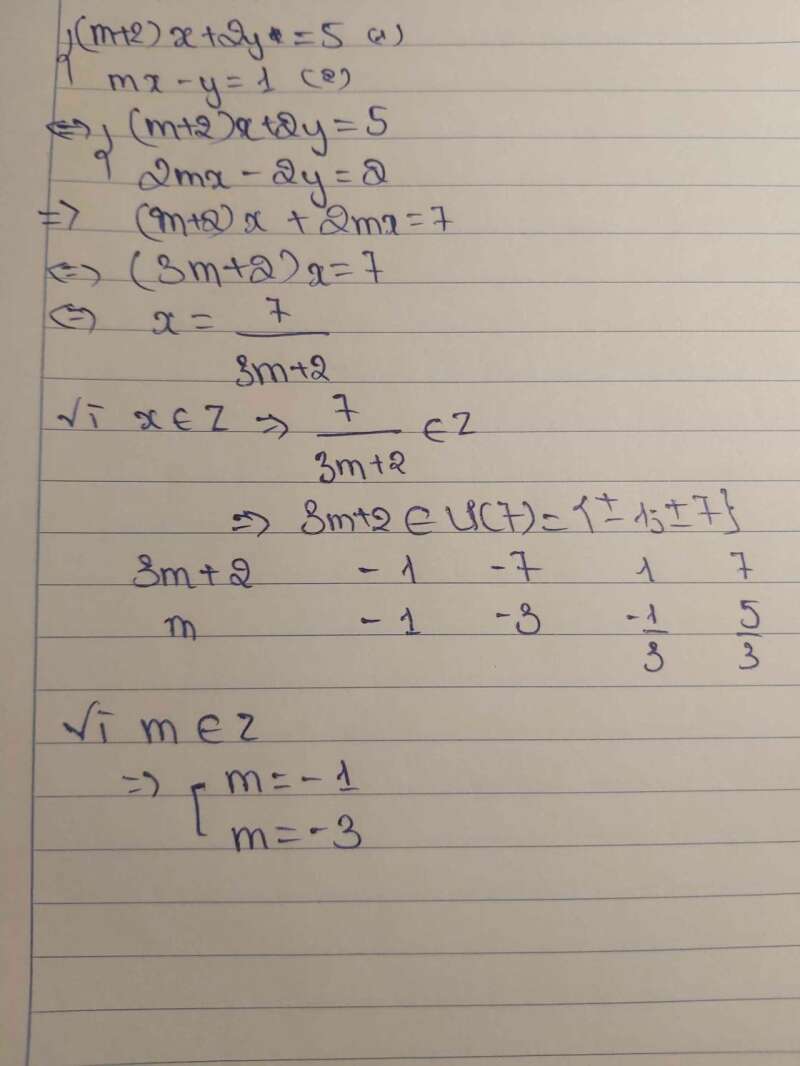 {(m+2)x+2y=5 (1)
mx-y=1 (2)
⇔ {(m+2)x+2y=5
2mx-2y=2
⇒ (m+2)x+2mx=7
⇔ (3m+2)x=7
⇔ x = 7/(3m+2)
Vì x∈Z ⇒ 7/(3m+2) ∈Z
⇒ 3m+2∈Ư(7)={±1;±7}
3m+2 -1 -7 1 7
m -1 -3 -1/3 5/3
Vì m∈Z
⇒ [m=-1
m=-3